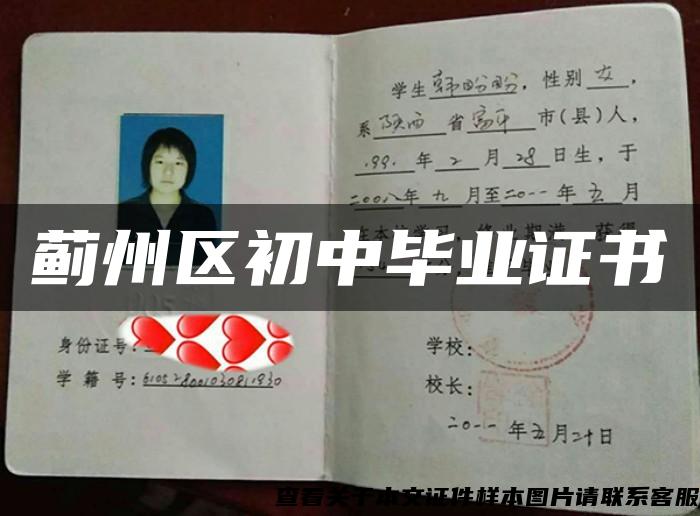 学生韩盼盼，性别女，
系陕西省富平市(县)人，
1991年2月28日生，于
二00八年九月至二0一一年五月
蓟州区初中毕业证书
身份证号:
学籍号:610528001030811930
学校:
校长:
二0一一年五月二十日
查看关于本文证件样本图片请联系客服